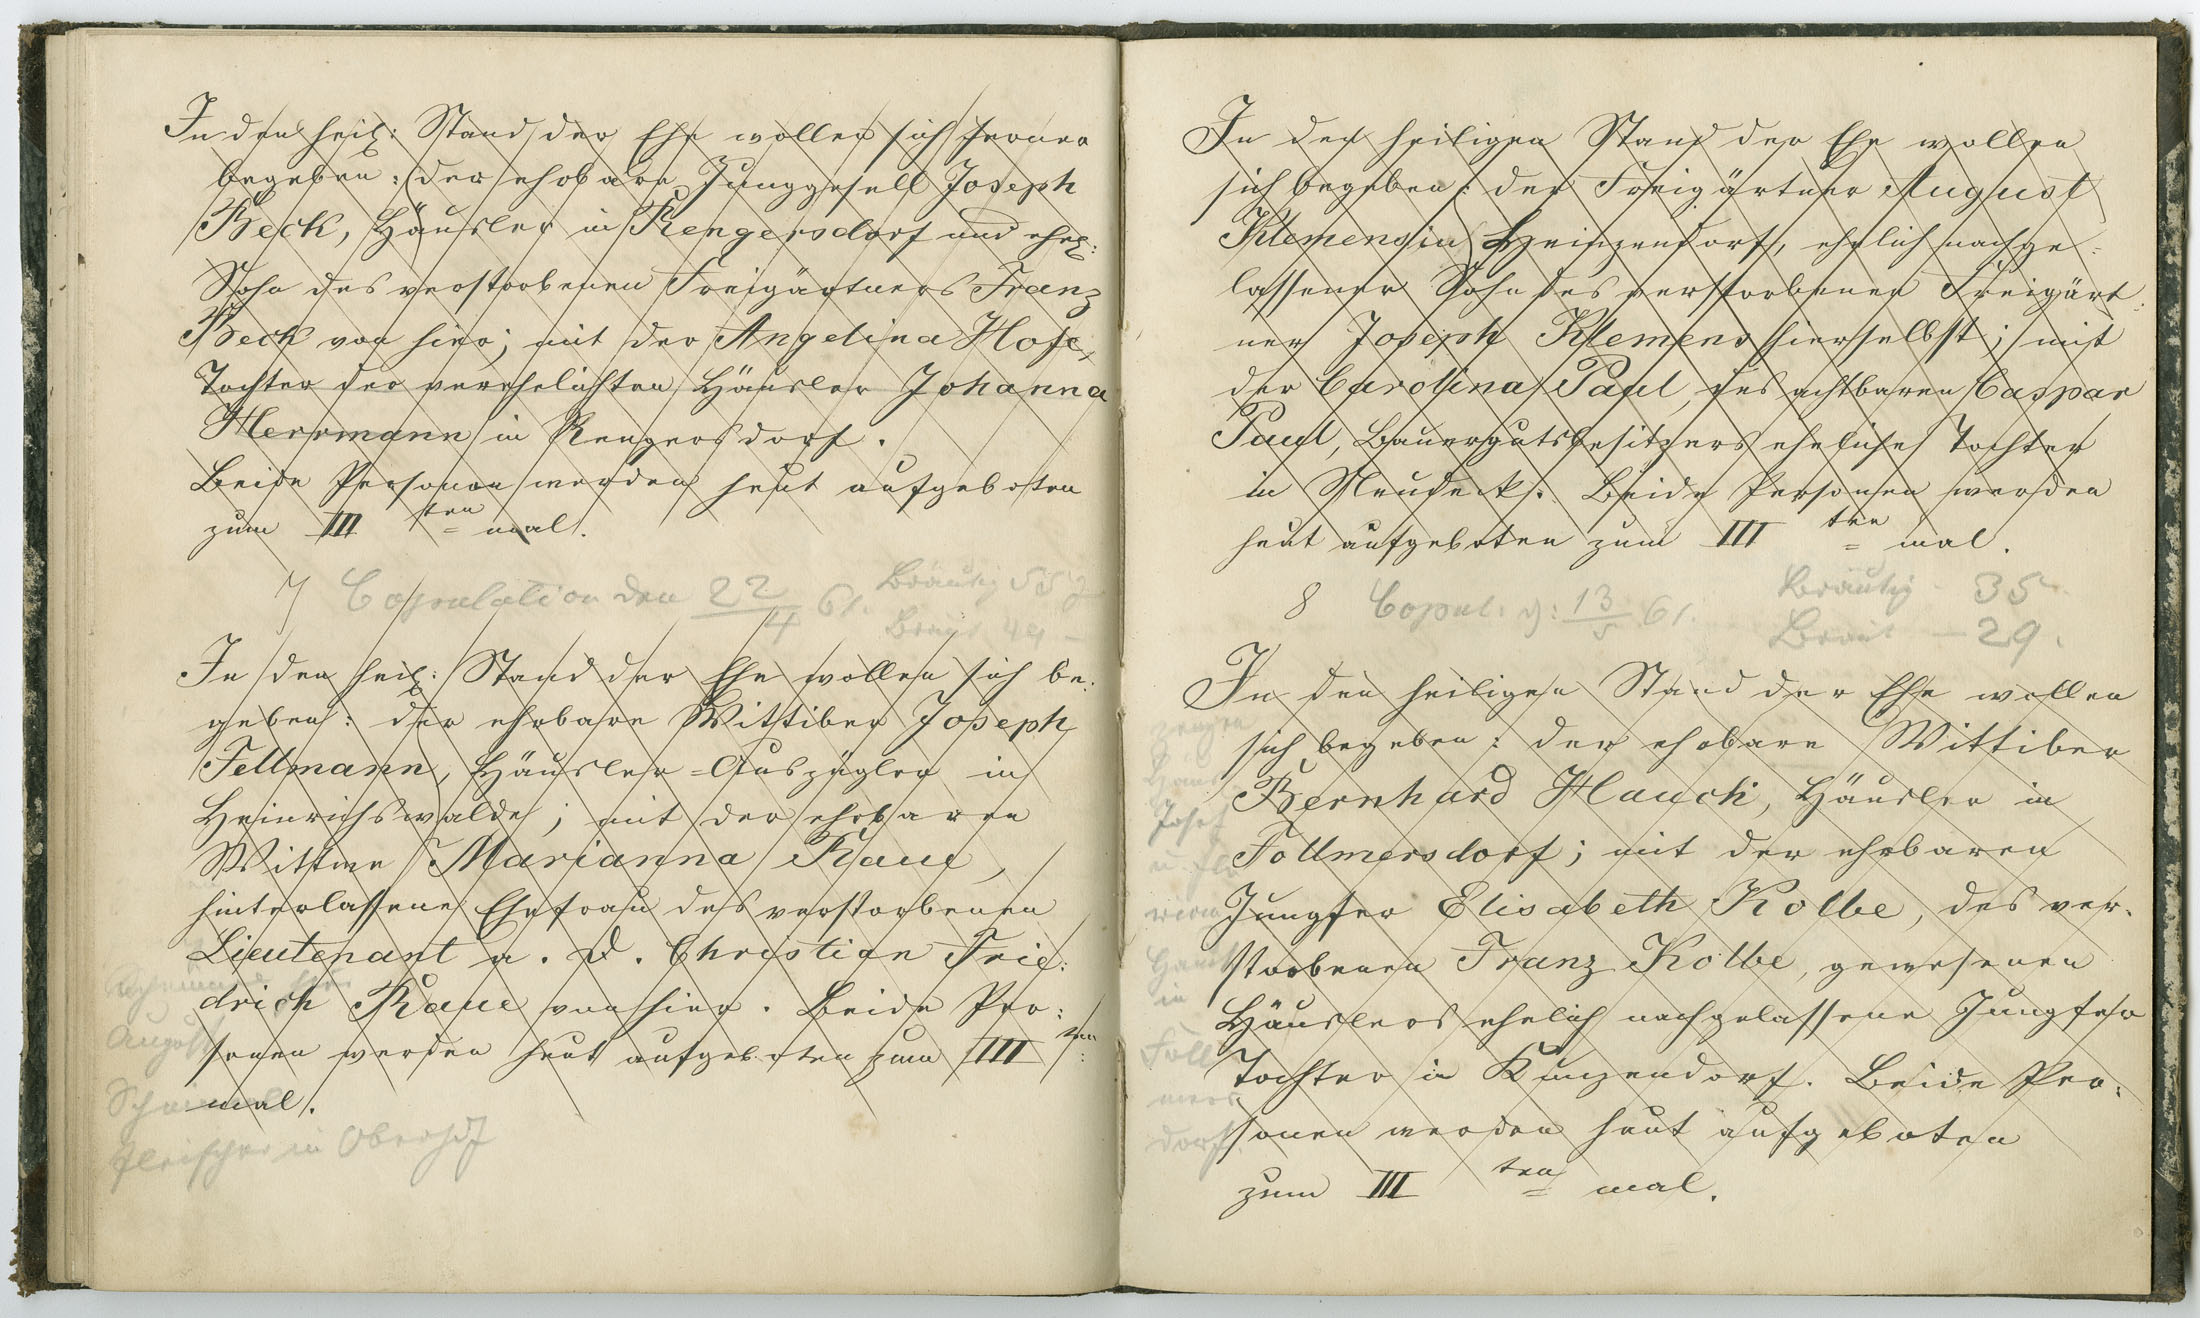 In den heil: Stand der Ehe wollen sich ferner
begeben: der ehrbare Junggesell Joseph
Beck, Häusler in Rengersdorf und ehel:
Sohn des verstorbenen Freigärtners Franz
Beck von hier; mit der Angelina Hofe,
Tochter der verehelichten Häusler Johanna
Herrmann in Rengersdorf.
Beide Personen werden heut aufgeboten
zum III ten = mal.
7 Copulation den 22/4 61. Bräutig
Braut
In den heil: Stand der Ehe wollen sich be:
geben: der ehrbare Wittiber Joseph
Fellmann, Häusler=Auszügler in
Heinrichswalde; mit der ehrbaren
Wittwe Marianna Raue,
hinterlassene Ehefrau des verstorbenen
Lieutenant a. D. Christian Frie:
drich Raue von hier. Beide Per:
sonen werden heut aufgeboten zum III ten:
mal.
August
Fleischer in
In den heiligen Stand der Ehe wollen
sich begeben: der Freigärtner August
Klemens in Heinzendorf, ehelich nachge=
lassener Sohn des verstorbenen Freigärt:
ner Joseph Klemens hierselbst; mit
der Carolina Paul, des achtbaren Caspar
Paul, Bauergutsbesitzers eheliche Tochter
in Neudeck. Beide Personen werden
heut aufgeboten zum III ten = mal.
8 Copul: d: 13/5 61. Bräutig - 35
Braut - 29.
In den heiligen Stand der Ehe wollen
sich begeben: der ehrbare Wittiber
Bernhard Hauck, Häusler in
Follmersdorf; mit der ehrbaren
Jungfer Elisabeth Kolbe, des ver:
storbenen Franz Kolbe, gewesenen
Häuslers ehelich nachgelassene Jungfer
Tochter in Kunzendorf. Beide Per:
sonen werden heut aufgeboten
zum III ten = mal.
Josef
in
Foll
mers
dorf.